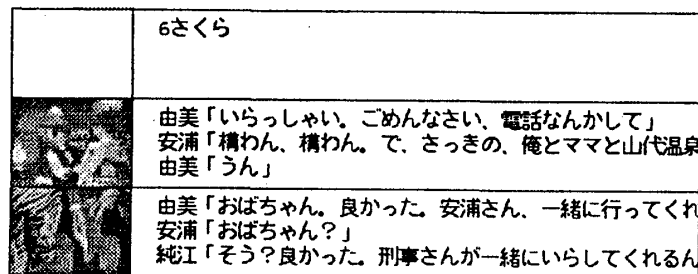 6さくら
由美「いらっしゃい。ごめんなさい、電話なんかして」
安浦「構わん、構わん。で、さっきの、俺とママと山代温泉
由美「うん」
由美「おばちゃん。良かった。安浦さん、一緒に行ってくれ
安浦「おばちゃん?」
純江「そう?良かった。刑事さんが一緒にいらしてくれるん